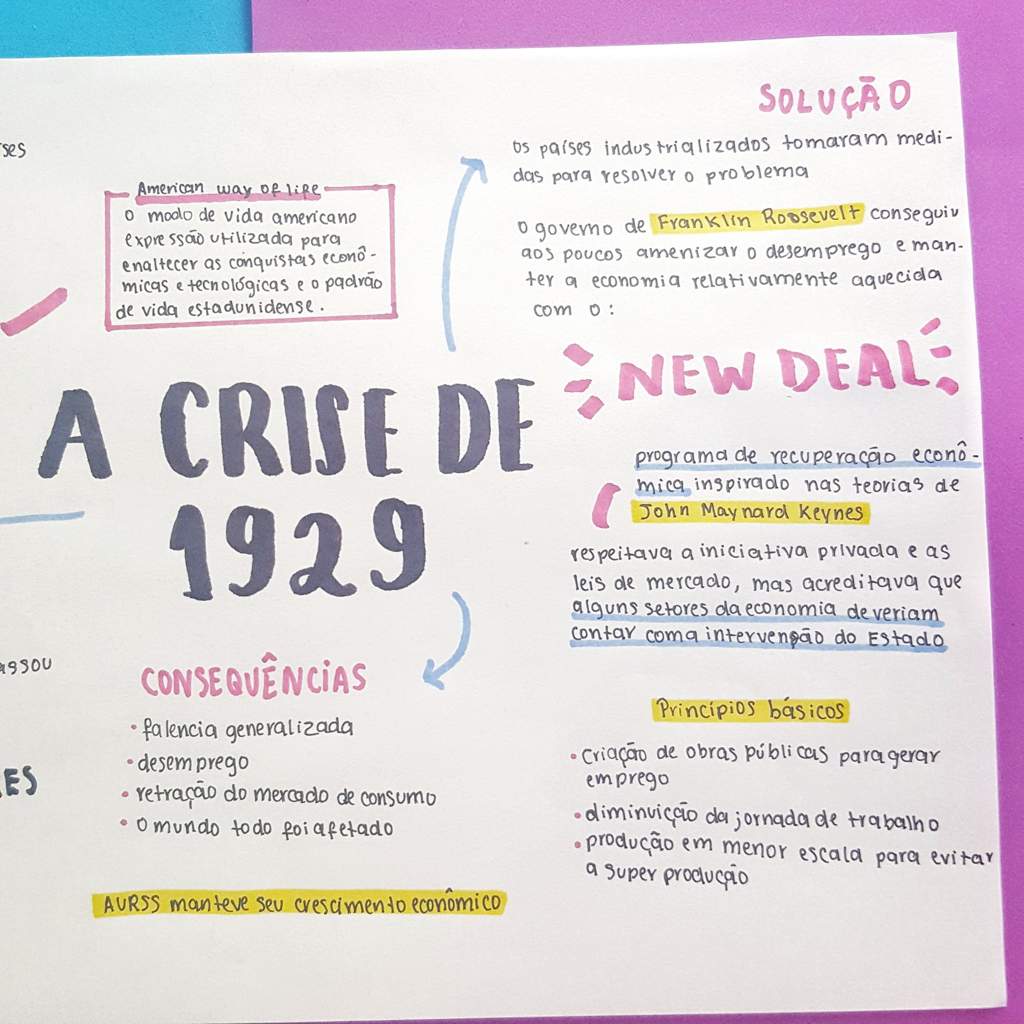 American way of life
o modo de vida americano
expressão utilizada para
enaltecer as conquistas econô-
micas e tecnológicas e o padrão
de vida estadunidense.
A CRISE DE
1929
CONSEQUÊNCIAS
• falencia generalizada
• desemprego
• retração do mercado de consumo
• o mundo todo foi afetado
A URSS manteve seu crescimento econômico
SOLUÇÃO
os países industrializados tomaram medi-
das para resolver o problema
o governo de Franklin Roosevelt conseguiu
aos poucos amenizar o desemprego e man-
ter a economia relativamente aquecida
com o:
NEW DEAL
programa de recuperação econô-
mica inspirado nas teorias de
John Maynard Keynes
respeitava a iniciativa privada e as
leis de mercado, mas acreditava que
alguns setores da economia deveriam
contar com a intervenção do Estado
Princípios básicos
• criação de obras públicas para gerar
emprego
• diminuição da jornada de trabalho
• produção em menor escala para evitar
a super produção